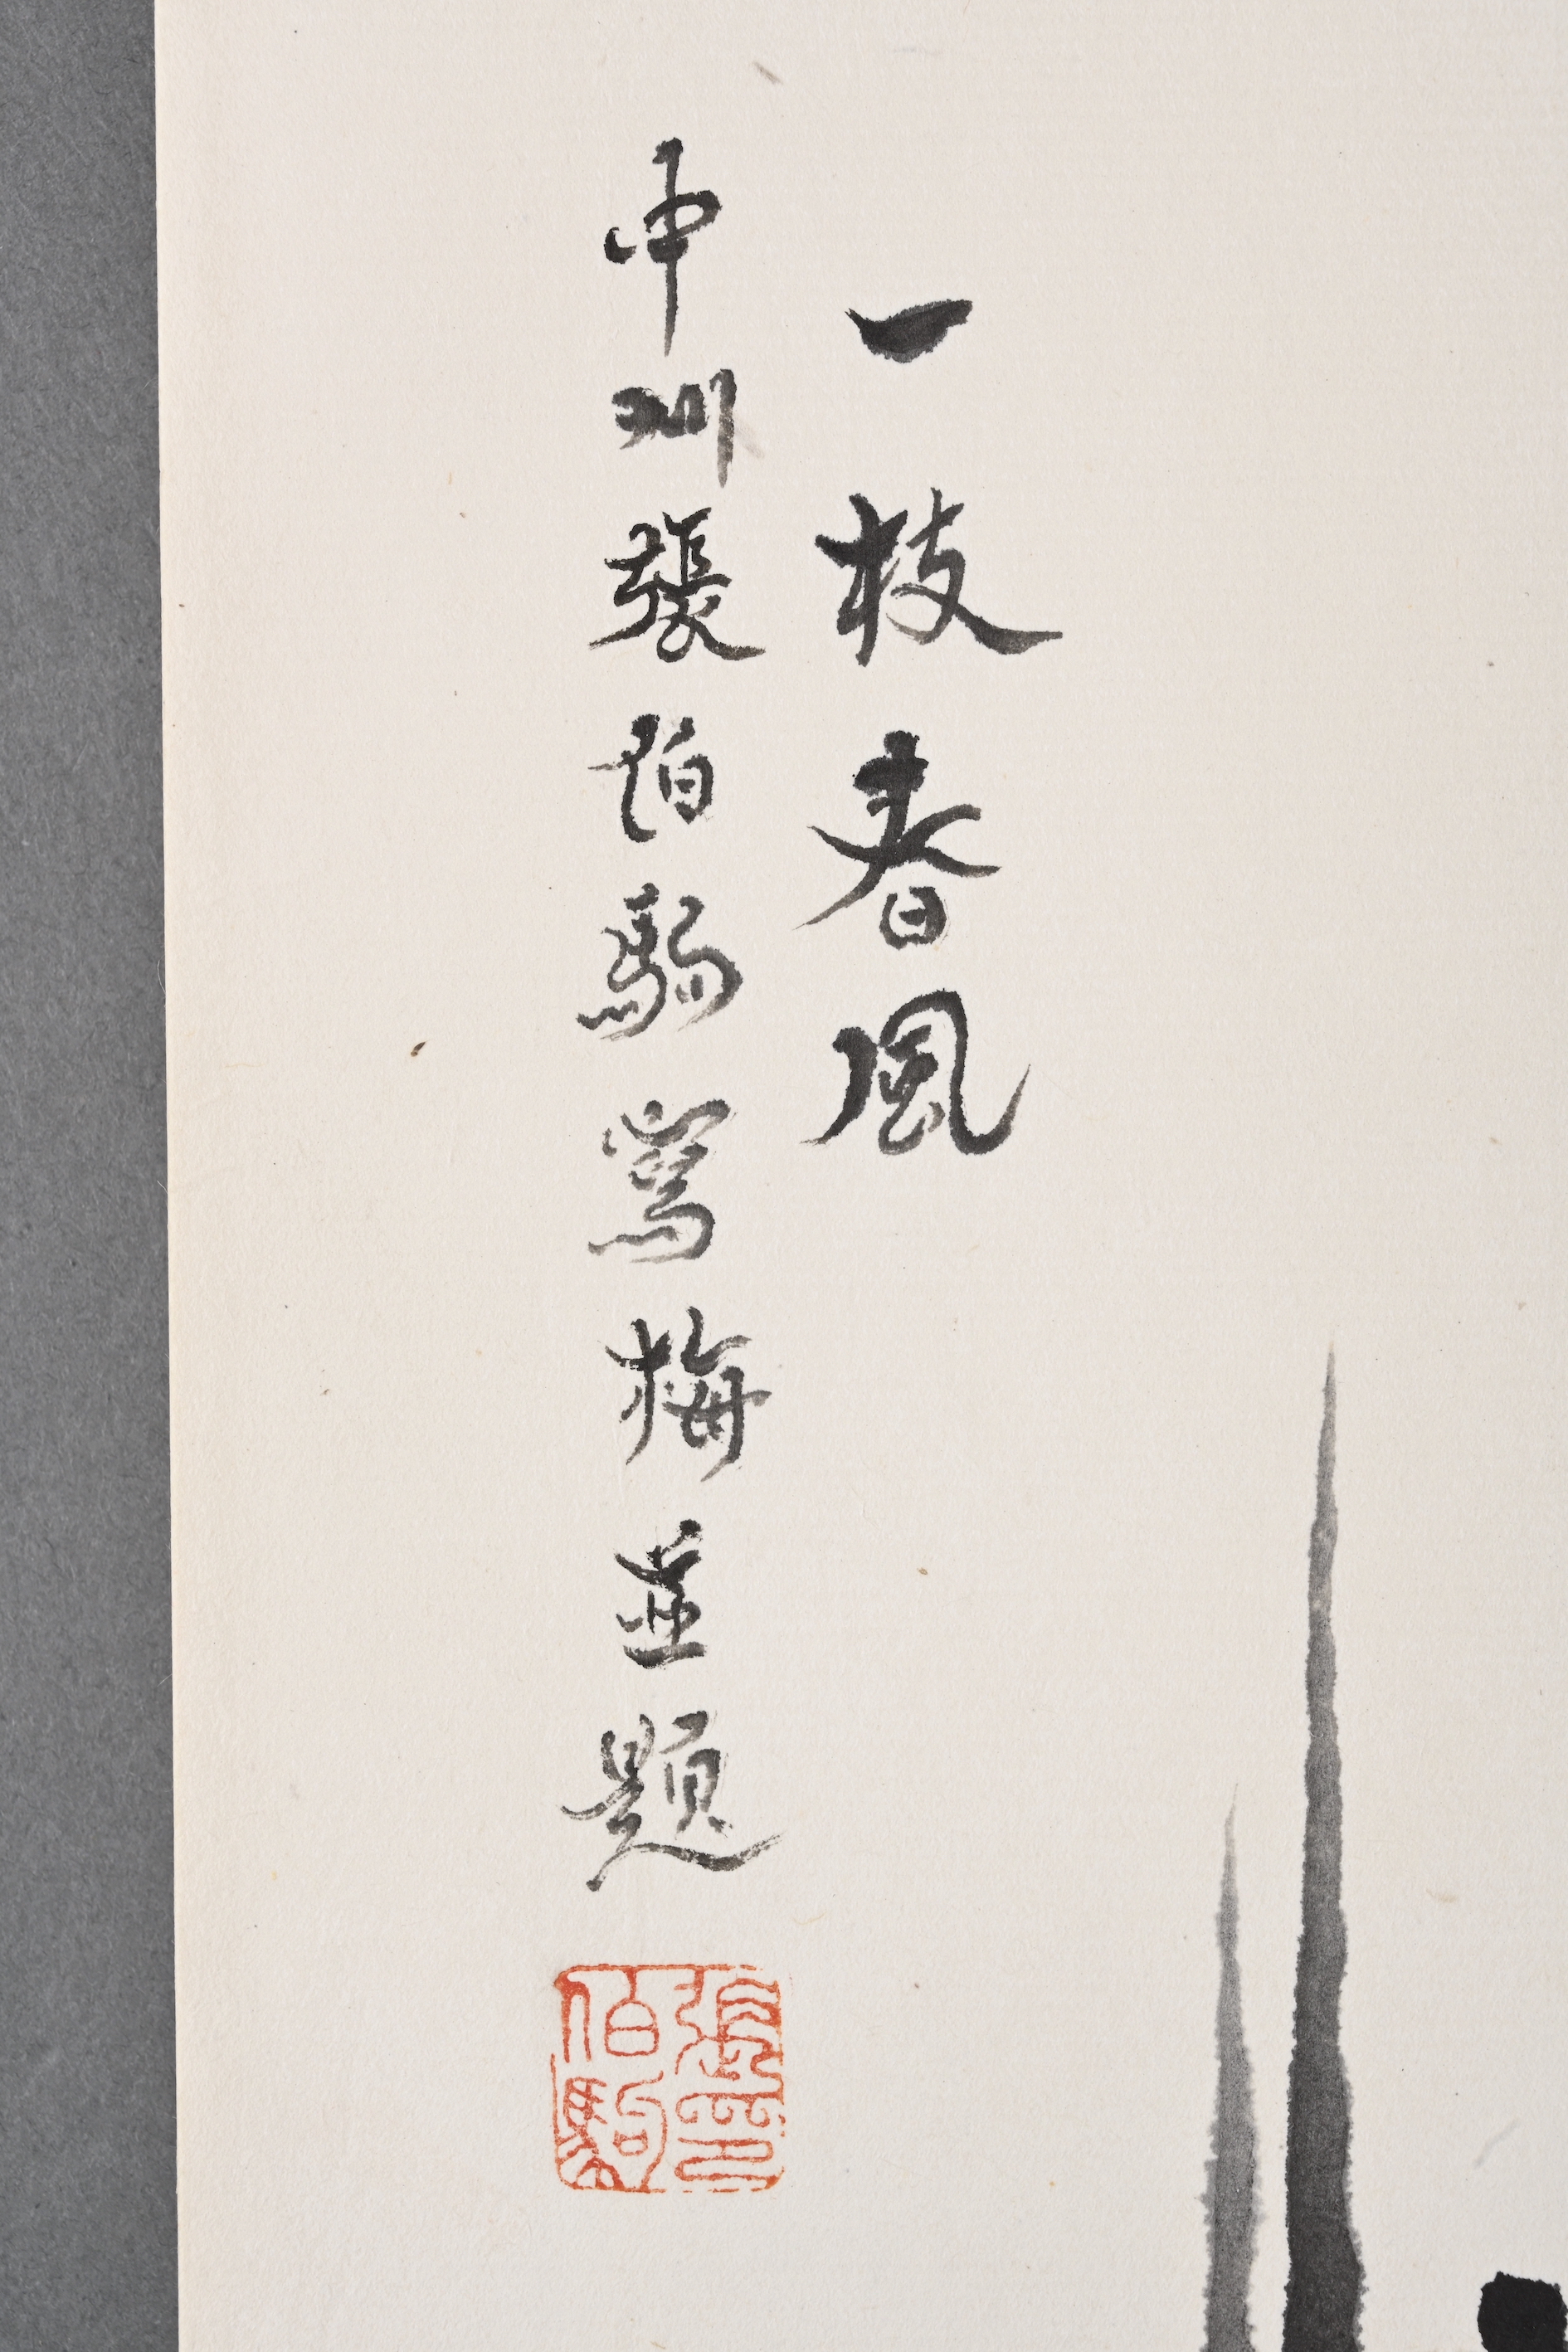 一枝春風
中州張伯駒寫梅並題
張伯駒印